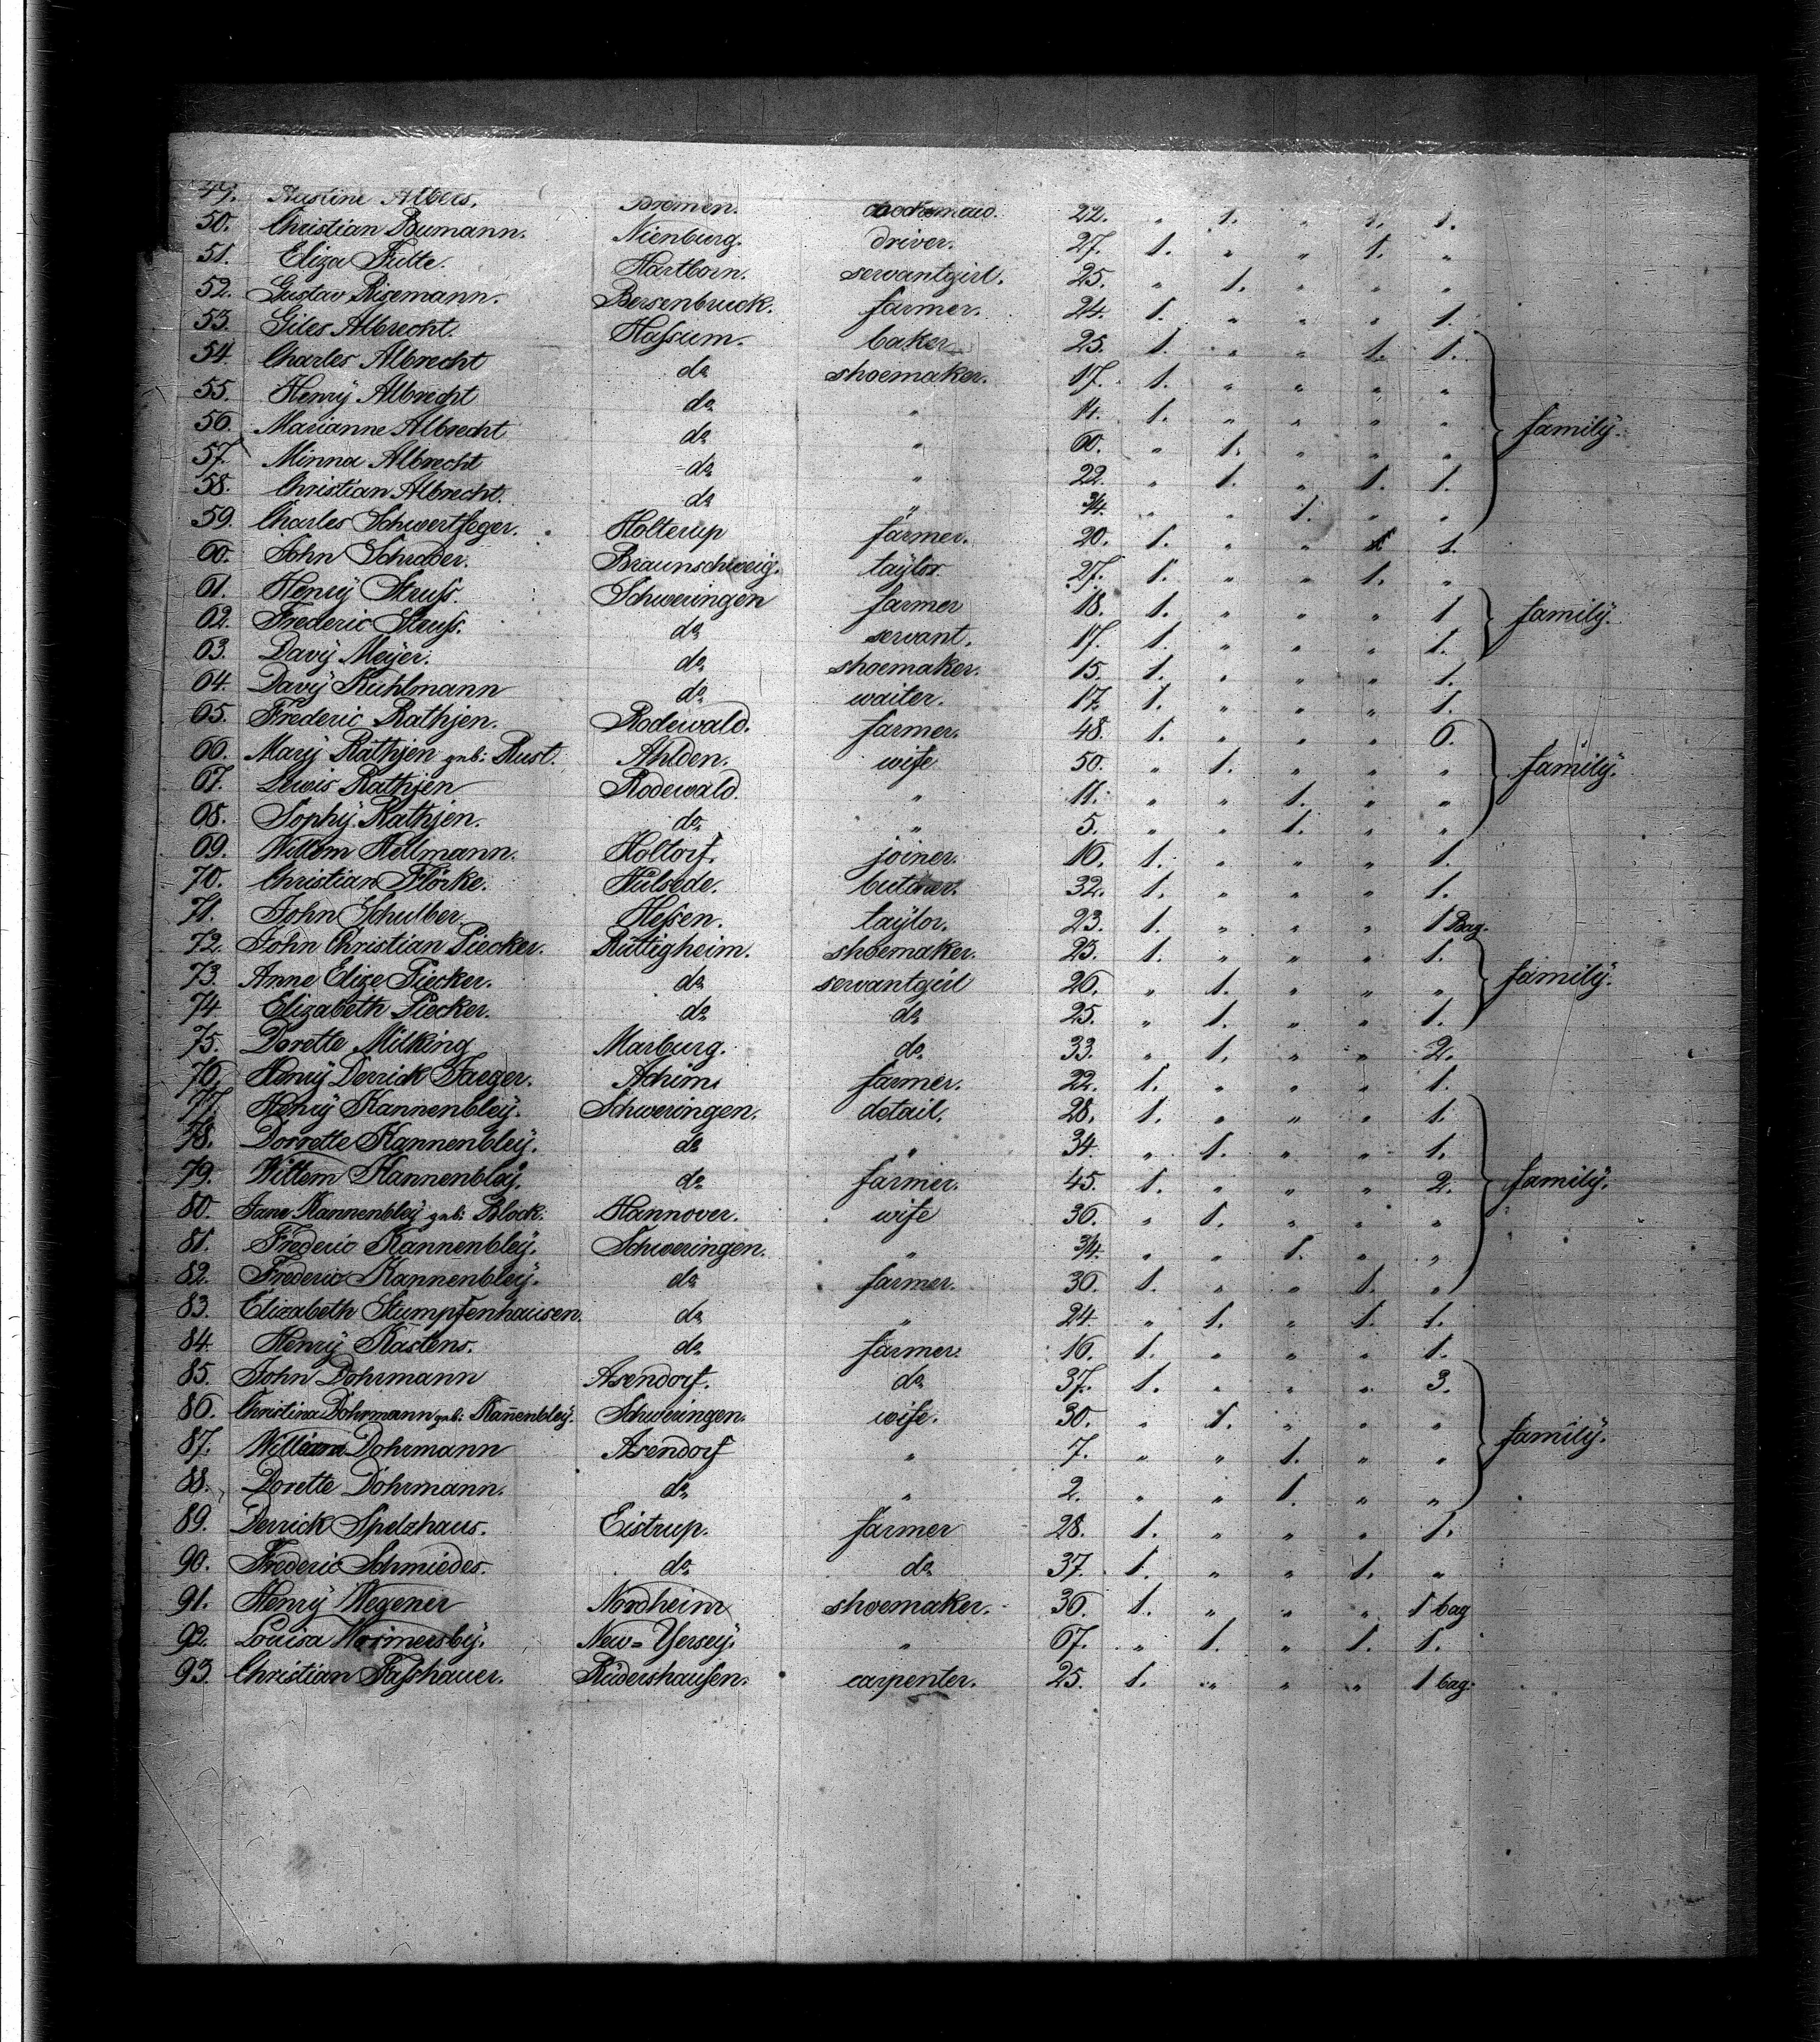 49. Justine Albers. Bremen. 22. " 1. " 1. 1.
50. Christian Bumann. Nienburg. driver. 27. 1. " " 1. "
51. Eliza Tutte. Hartborn. servantgirl. 25. " 1. " " "
52. Gustav Risemann. Bersenbruck. farmer. 24. 1. " " " 1.
53. Giles Albrecht. Haſsum. baker 25. 1. " " 1. 1.
54 Charles Albrecht do shoemaker. 17. 1. " " " "
55. Henrÿ Albrecht do " 14. 1. " " " " familÿ.
56. Marianne Albrecht do " 60. " 1. " " "
57. Minna Albrecht do " 22. " 1. " 1. 1.
58. Christian Albrecht. do " 3/4. " " 1. " "
59. Charles Schwertfeger. Holterup farmer. 20. 1. " " 1.
60. John Schrader. Braunschweig. taÿlor. 27. 1. " " 1. "
61. Henrÿ Struſs. Schweringen farmer 18. 1. " " " 1 familÿ.
62. Frederic Struſs. do servant. 17. 1. " " " 1.
63. Davÿ Meÿer. do shoemaker. 15. 1. " " " 1.
64. Davÿ Kuhlmann do waiter. 17. 1. " " " 1.
65. Frederic Rathjen. Rodewald. farmer. 48. 1. " " " 6.
66. Marÿ Rathjen geb: Rust. Ahlden. wife 50. " 1. " " " familÿ.
67. Lewis Rathjen Rodewald. " 11. " " 1. " "
68. Sophÿ Rathjen. do " 5. " " 1. " "
69. Willem Hellmann. Holtorf. joiner. 16. 1. " " " 1.
70. Christian Flörke. Hülsede. butcher. 32. 1. " " " 1.
71. John Schulber Heſsen. taÿlor. 23. 1. " " " 1 Bag.
72. John Christian Siecker. Rüttigheim. shoemaker. 23. 1. " " " 1.
73. Anne Elize Siecker. do servantgirl 26. " 1. " " " familÿ.
74 Elizabeth Siecker. do do 25. " 1. " " 1.
75. Dorette Milking Marburg. do 33. " 1. " " 2.
76. Henrÿ Derrick Jaeger. Achim farmer. 22. 1. " " " 1.
77. Henrÿ Kannenbleÿ. Schweringen. detail. 28. 1. " " " 1.
78. Dorrette Kannenbleÿ. do " 34. " 1. " " 1.
79. Willem Kannenbleÿ. do farmer. 45. 1. " " " 2. familÿ.
80. Jane Kannenbleÿ geb: Block. Hannover. wife 36. " 1. " " "
81. Frederic Kannenbleÿ. Schweringen. " 3/4. " " 1. " "
82. Frederic Kannenbleÿ. do farmer. 36 1. " " 1. "
83. Elizabeth Stumpfenhausen. do " 24. " 1. " 1. 1.
84. Henrÿ Kastens. do farmer. 16. 1. " " " 1.
85. John Dohrmann Asendorf. do 37. 1. " " " 3.
86. Christina Dohrmann geb: Kan̄enbleÿ. Schweringen. wife. 30. " 1. " " "
87. William Dohrmann Asendorf " 7. " " 1. " " familÿ.
88. Dorette Dohrmann. do " 2. " " 1. " "
89. Derrick Spelzhaus. Eistrup. farmer 28. 1. " " " 1.
90. Frederic Schmiedes. do do 37. 1. " " 1. "
91. Henrÿ Wegener Nordheim shoemaker. 36. 1. " " " 1 bag
92. Louisa Wormersbÿ. New=Yerseÿ. " 67. " 1. " 1. 1.
93. Christian Faſshauer. Rüdershauſen. carpenter. 25. 1. " " " 1 bag.